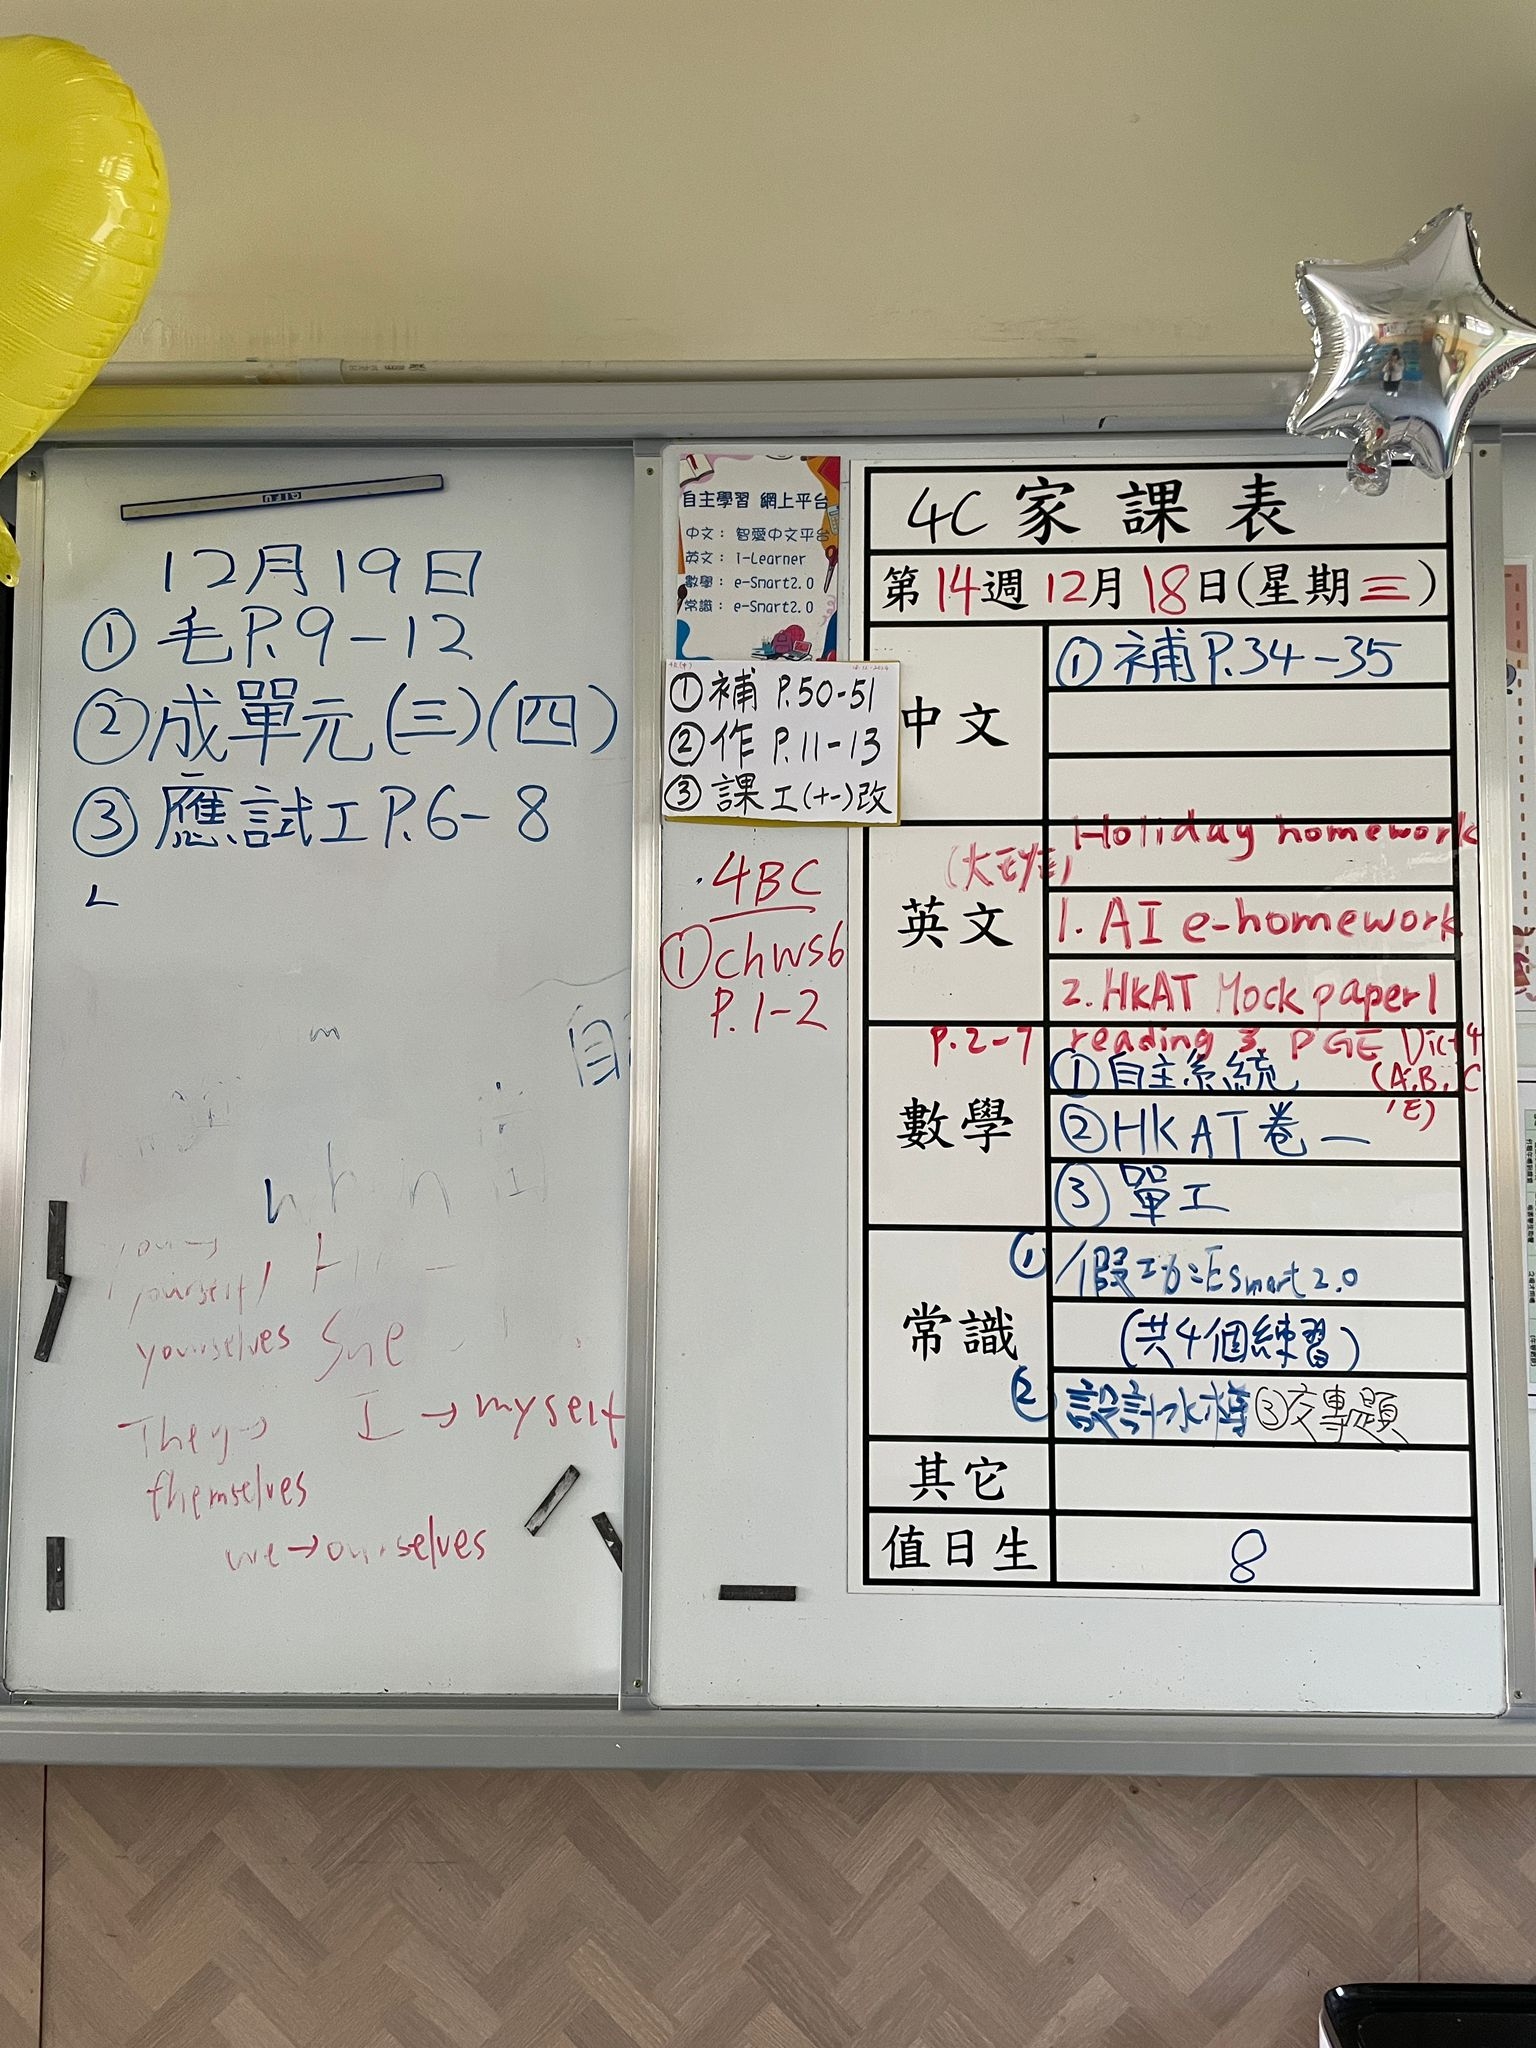 12月19日
①毛P.9-12
②成單元(三)(四)
③應試工P.6-8
自
yourself
yourselves She
I → myself
They→
themselves
we→ourselves
自主學習 網上平台
中文：智愛中文平台
英文：i-Learner
數學：e-Smart2.0
常識：e-Smart2.0
①補 P.50-51
②作 P.11-13
③課工(十一)改
4BC
①chws6
P.1-2
4C 家課表
第14週12月18日(星期三)
中文
①補P.34-35
英文
Holiday homework
1. AI e-homework
2. HKAT Mock paper1
P.2-7 reading 3. PGE Dict4
(A,B,C
,E)
數學
①自主系統
②HKAT卷一
③單工
常識
①假功:Esmart2.0
(共4個練習)
②設計水樽③交專題
其它
值日生
8